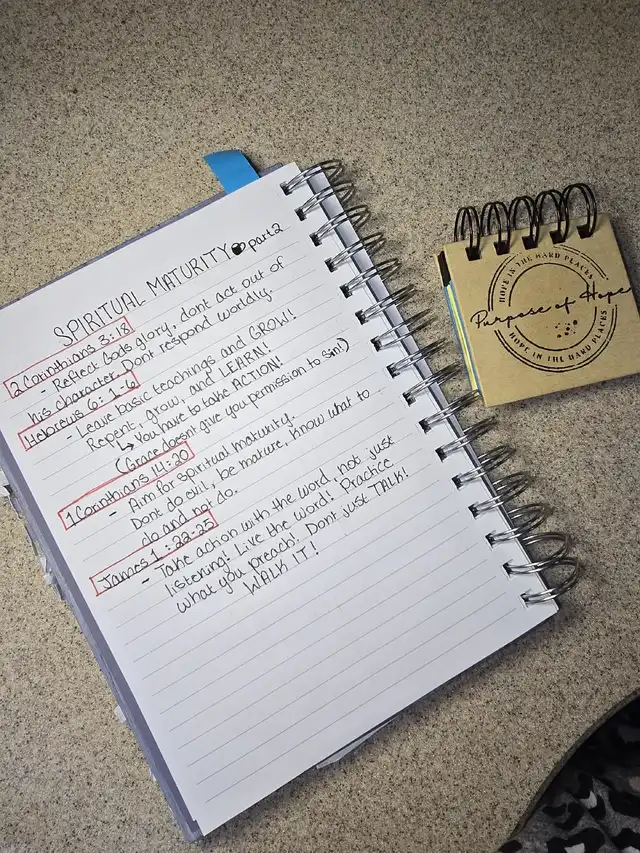 SPIRITUAL MATURITY part 2
2 Corinthians 3:18
- Reflect Gods glory, dont act out of
his character. Dont respond worldly.
Hebrews 6:1-6
- Leave basic teachings and GROW!
Repent, grow, and LEARN!
↳ You have to take ACTION!
(Grace doesnt give you permission to sin!)
1 Corinthians 14:20
- Aim for spiritual maturity.
Dont do evil, be mature, know what to
do and not do.
James 1:22-25
- Take action with the word, not just
listening! Live the word! Practice
what you preach! Dont just TALK!
WALK IT!
HOPE IN THE HARD PLACES
Purpose of Hope
HOPE IN THE HARD PLACES